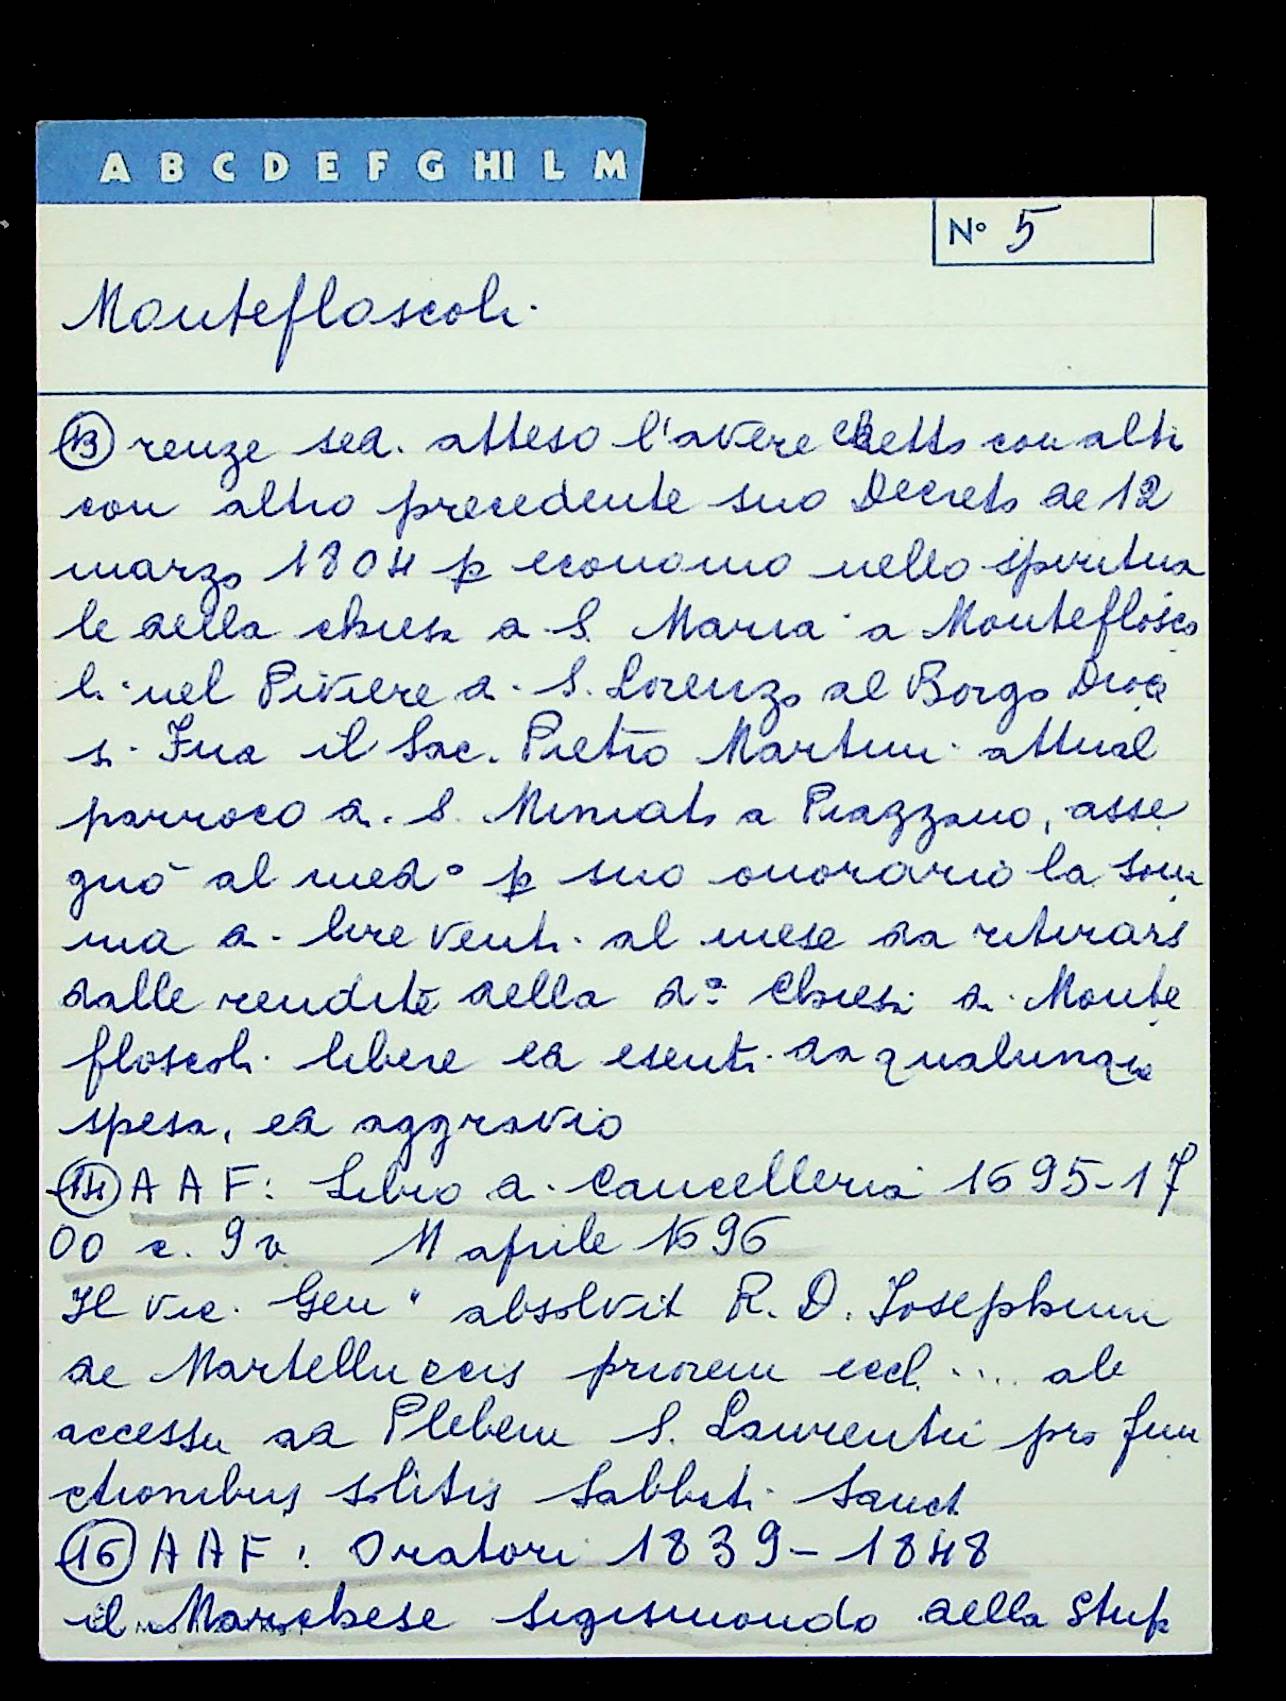 A B C D E F G HI L M
N° 5
Montefloscoli.
13 renze sed. atteso l'avere eletto con alti
con altro precedente suo Decreto de 12
marzo 1804 p economo nello spiritua
le della chiesa d. S. Maria a Monteflosco
li nel Piviere d. S. Lorenzo al Borgo Dioce
si. Fna il Sac. Pietro Martini attual
parroco d. S. Miniato a Piazzano, asse
gnò al med° p suo onorario la som
ma d. lire venti al mese da ritirarsi
dalle rendite della d.a Chiesa d. Monte
floscoli libere ed esenti da qualunque
spesa, ed aggravio
14 A A F: Libro d. Cancelleria 1695-17
00 c. 9v 11 aprile 1696
Il Vic. Gen. absolvit R. D. Josephum
de Martelluccis priorem eccl. .... ab
accessu ad Plebem S. Laurentii pro fun
ctionibus solitis Sabbati Sanct
16 A A F: Oratori 1839-1848
il Marchese Sigismondo della Stuf